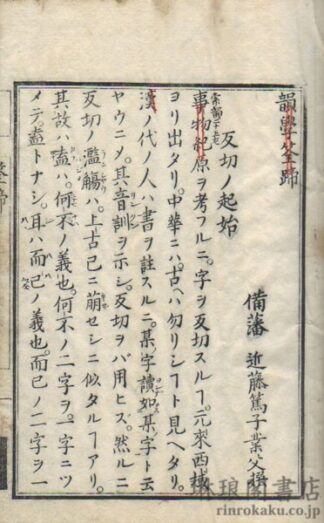 韻學筌蹄
備藩 近藤篤子業父撰
反切ノ起始
事物紀原ヲ考フルニ。字ヲ反切スルヿ。元來西域
ヨリ出タリ。中華ニハ。古ヘハ勿リシヿト見ヘタリ。
漢ノ代ノ人ハ書ヲ註スルニ。某字讀如某字ト云
ヤウニメ。其音訓ヲ示シ。反切ヲバ用ヒズ。然ルニ
反切ノ濫觴ハ。上古已ニ萠セシニ似タルヿアリ。
其故ハ盍ハ。何不ノ義也。何不ノ二字ヲ。一字ニツ
メテ盍トナシ。耳ハ而已ノ義也。而已ノ二字ヲ一
琳琅閣書店
rinrokaku.co.jp